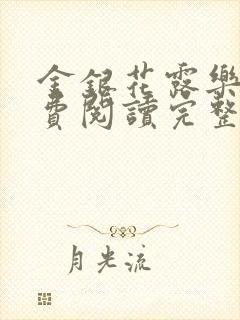 金銀花露樂
費閱讀完整
月光流